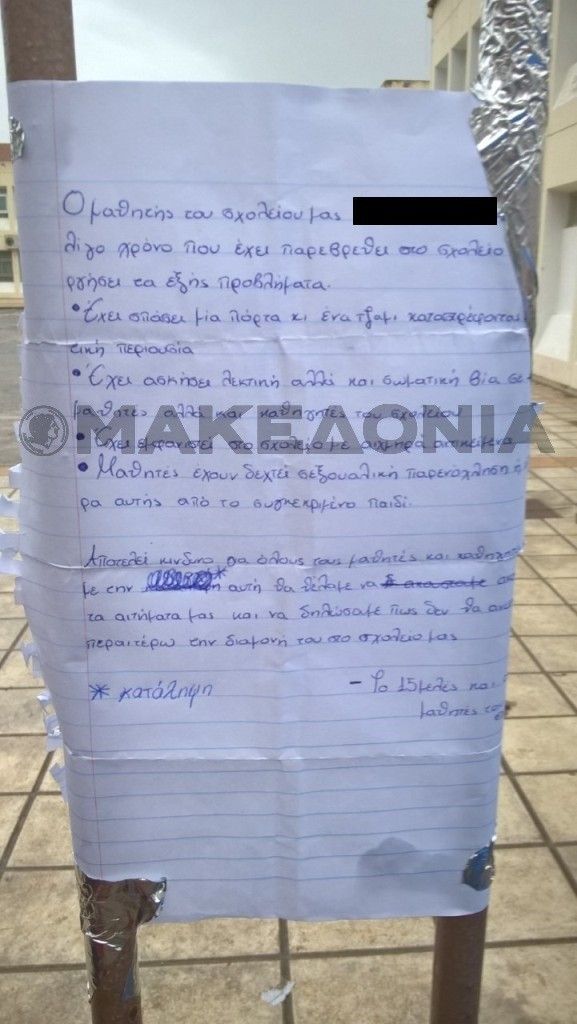 Ο μαθητής του σχολείου μας
λίγο χρόνο που έχει παρεβρεθεί στο σχολείο
ργήσει τα εξής προβλήματα.
•Έχει σπάσει μία πόρτα κι ένα τζάμι καταστρέφοντας
τική περιουσία
•Έχει ασκήσει λεκτική αλλά και σωματική βία σε
μαθητές αλλά και καθηγητές του σχολείου
•Έχει εμφανιστεί στο σχολείο με αιχμηρά αντικείμενα
•Μαθητές έχουν δεχτεί σεξουαλική παρενόχληση ή
ρα αυτής από το συγκεκριμένο παιδί.
ΜΑΚΕΔΟΝΙΑ
Αποτελεί κίνδυνο για όλους τους μαθητές και καθηγητ
με την * αυτή θα θέλαμε να
τα αιτήματα μας και να δηλώσαμε πως δεν θα
περαιτέρω την διαμονή του στο σχολείο μας
* κατάληψη
- Το 15μελές και
μαθητές το